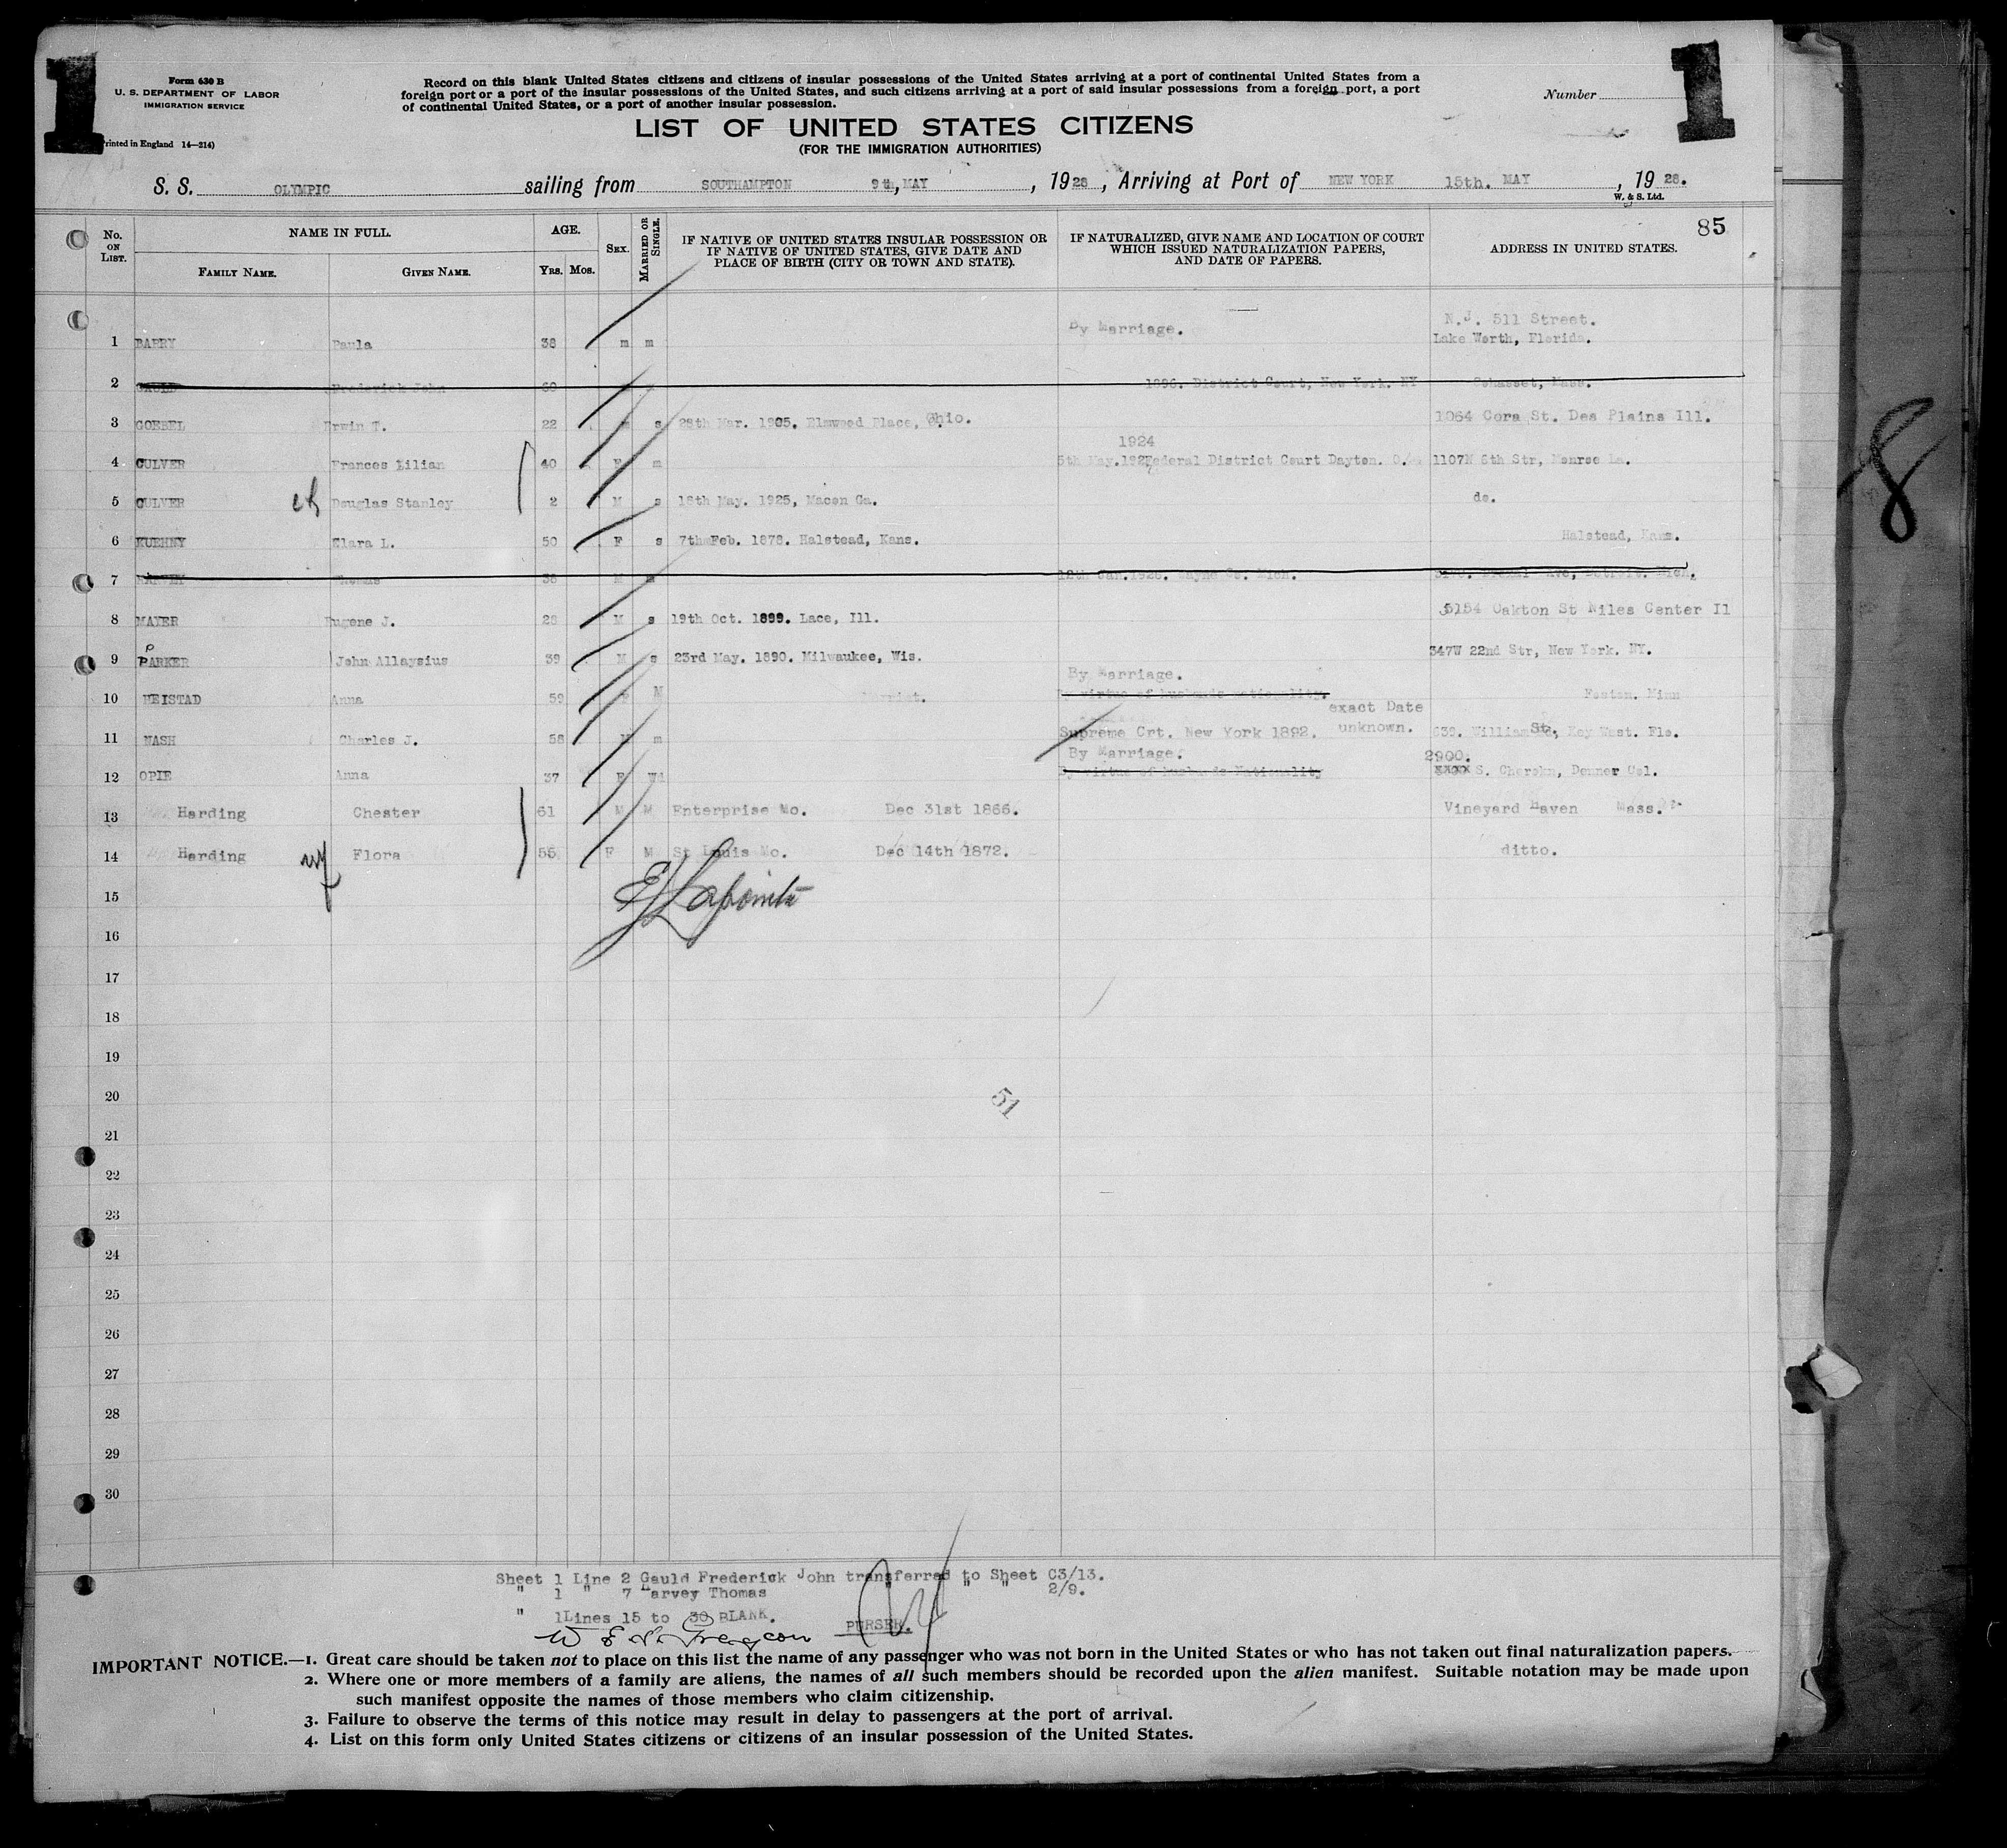 1
1
Form 630 B
U. S. DEPARTMENT OF LABOR
IMMIGRATION SERVICE
Printed in England 14—214)
Record on this blank United States citizens and citizens of insular possessions of the United States arriving at a port of continental United States from a
foreign port or a port of the insular possessions of the United States, and such citizens arriving at a port of said insular possessions from a foreign port, a port
of continental United States, or a port of another insular possession.
Number
LIST OF UNITED STATES CITIZENS
(FOR THE IMMIGRATION AUTHORITIES)
S. S. OLYMPIC sailing from SOUTHAMPTON 9th, MAY , 1928 , Arriving at Port of NEW YORK 15th. MAY , 1928.
W. & S. Ltd.
85
No. ON LIST. NAME IN FULL. FAMILY NAME. GIVEN NAME. AGE. YRS. MOS. SEX. MARRIED OR SINGLE. IF NATIVE OF UNITED STATES INSULAR POSSESSION OR IF NATIVE OF UNITED STATES, GIVE DATE AND PLACE OF BIRTH (CITY OR TOWN AND STATE). IF NATURALIZED, GIVE NAME AND LOCATION OF COURT WHICH ISSUED NATURALIZATION PAPERS, AND DATE OF PAPERS. ADDRESS IN UNITED STATES.
N.J. 511 Street.
1 BARRY Paula 38 m m By Marriage. Lake Worth, Florida.
2 GAULD Frederick John 60 1896. District Court, New York. NY Cohasset, Mass.
3 GOEBEL Erwin T. 22 m s 28th Mar. 1905. Elmwood Place, Ohio. 1064 Cora St. Des Plains Ill.
1924
4 CULVER Frances Lilian 40 F m 5th May. Federal District Court Dayton. O. 1107N 6th Str, Monroe La.
5 CULVER ch Douglas Stanley 2 M s 18th May. 1925, Macon Ga. do.
6 KUEHNY Clara L. 50 F s 7th Feb. 1878. Halstead, Kans. Halstead, Kans.
7 HARVEY Thomas 38 M m 12th Jan. 1926. Wayne Co. Mich. Ave, Detroit. Mich.
8 MAYER Eugene J. 28 M s 19th Oct. 1899. Lace, Ill. 5154 Oakton St Niles Center Il
9 PARKER John Allaysius 39 M s 23rd May. 1890. Milwaukee, Wis. 347W 22nd Str, New York. NY.
By Marriage.
10 HEISTAD Anna 59 F M By virtue of husbands nationality. Minn
exact Date
11 NASH Charles J. 58 M m Supreme Crt. New York 1892. unknown. William St, Key West. Flo.
By Marriage. 2900.
12 OPIE Anna 37 F Wd By virtue of husbands Nationality S. Cherokn, Denner Col.
13 Harding Chester 61 M M Enterprise Mo. Dec 31st 1866. Vineyard Haven Mass.
14 Harding wf Flora 55 F M St Louis Mo. Dec 14th 1872. ditto.
15
16
17
18
19
20
21
22
23
24
25
26
27
28
29
30
E J Lapointe
51
8
Sheet 1 Line 2 Gauld Frederick John transferred to Sheet C3/13.
" 1 " 7 Harvey Thomas " " " 2/9.
" 1Lines 15 to 30 BLANK. PURSER.
IMPORTANT NOTICE.—1. Great care should be taken not to place on this list the name of any passenger who was not born in the United States or who has not taken out final naturalization papers.
2. Where one or more members of a family are aliens, the names of all such members should be recorded upon the alien manifest. Suitable notation may be made upon
such manifest opposite the names of those members who claim citizenship.
3. Failure to observe the terms of this notice may result in delay to passengers at the port of arrival.
4. List on this form only United States citizens or citizens of an insular possession of the United States.